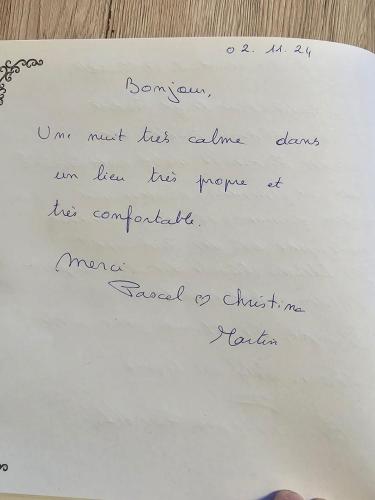 02.11.24
Bonjour,
Une nuit très calme dans
un lieu très propre et
très confortable.
Merci
Pascal ♡ Christine
Martin